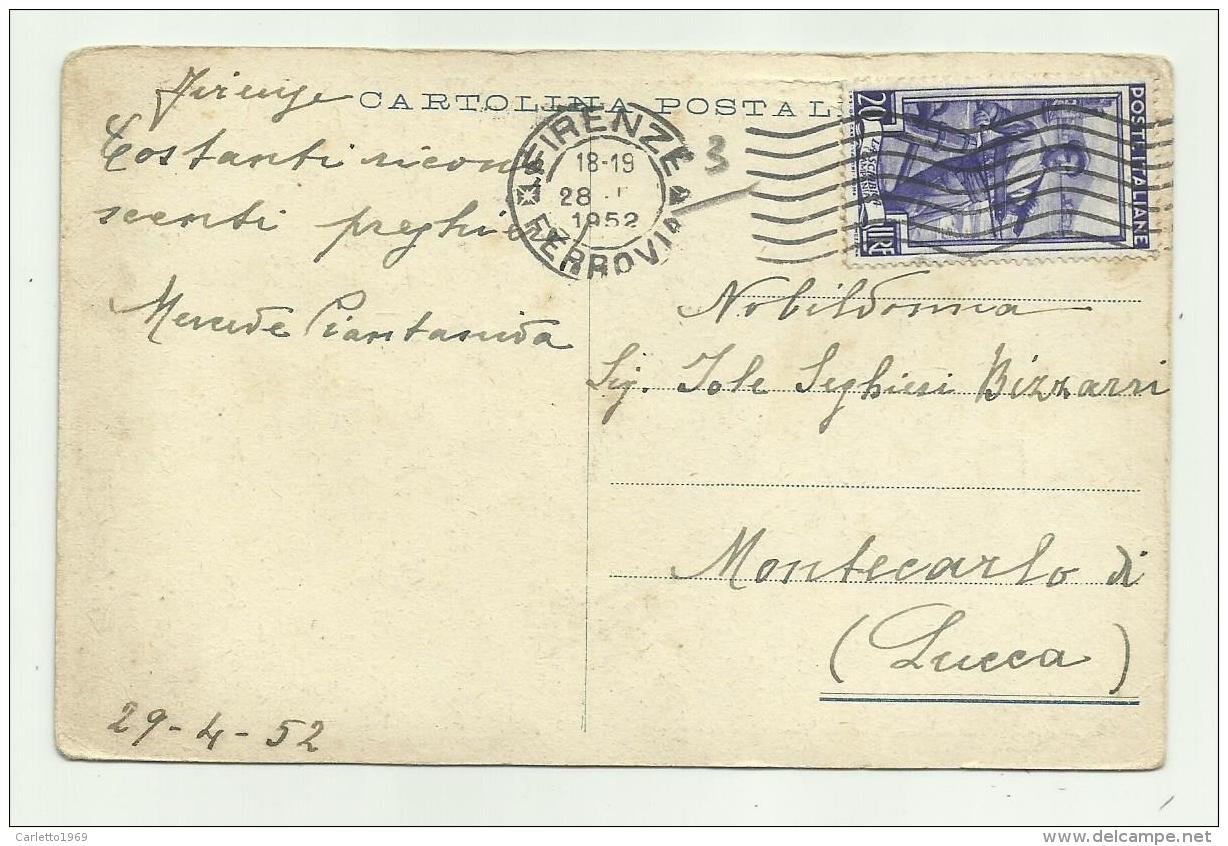 Firenze
CARTOLINA POSTAL
Costanti ricono
scenti preghi
Mercede Piantanida
29-4-52
FIRENZE
18-19
28
1952
FERROVIA
3
POSTE ITALIANE
20
LIRE
Nobildonna
Sig. Iole Seghieri Bizzarri
Montecarlo di
(Lucca)
Carletto1969
www.delcampe.net